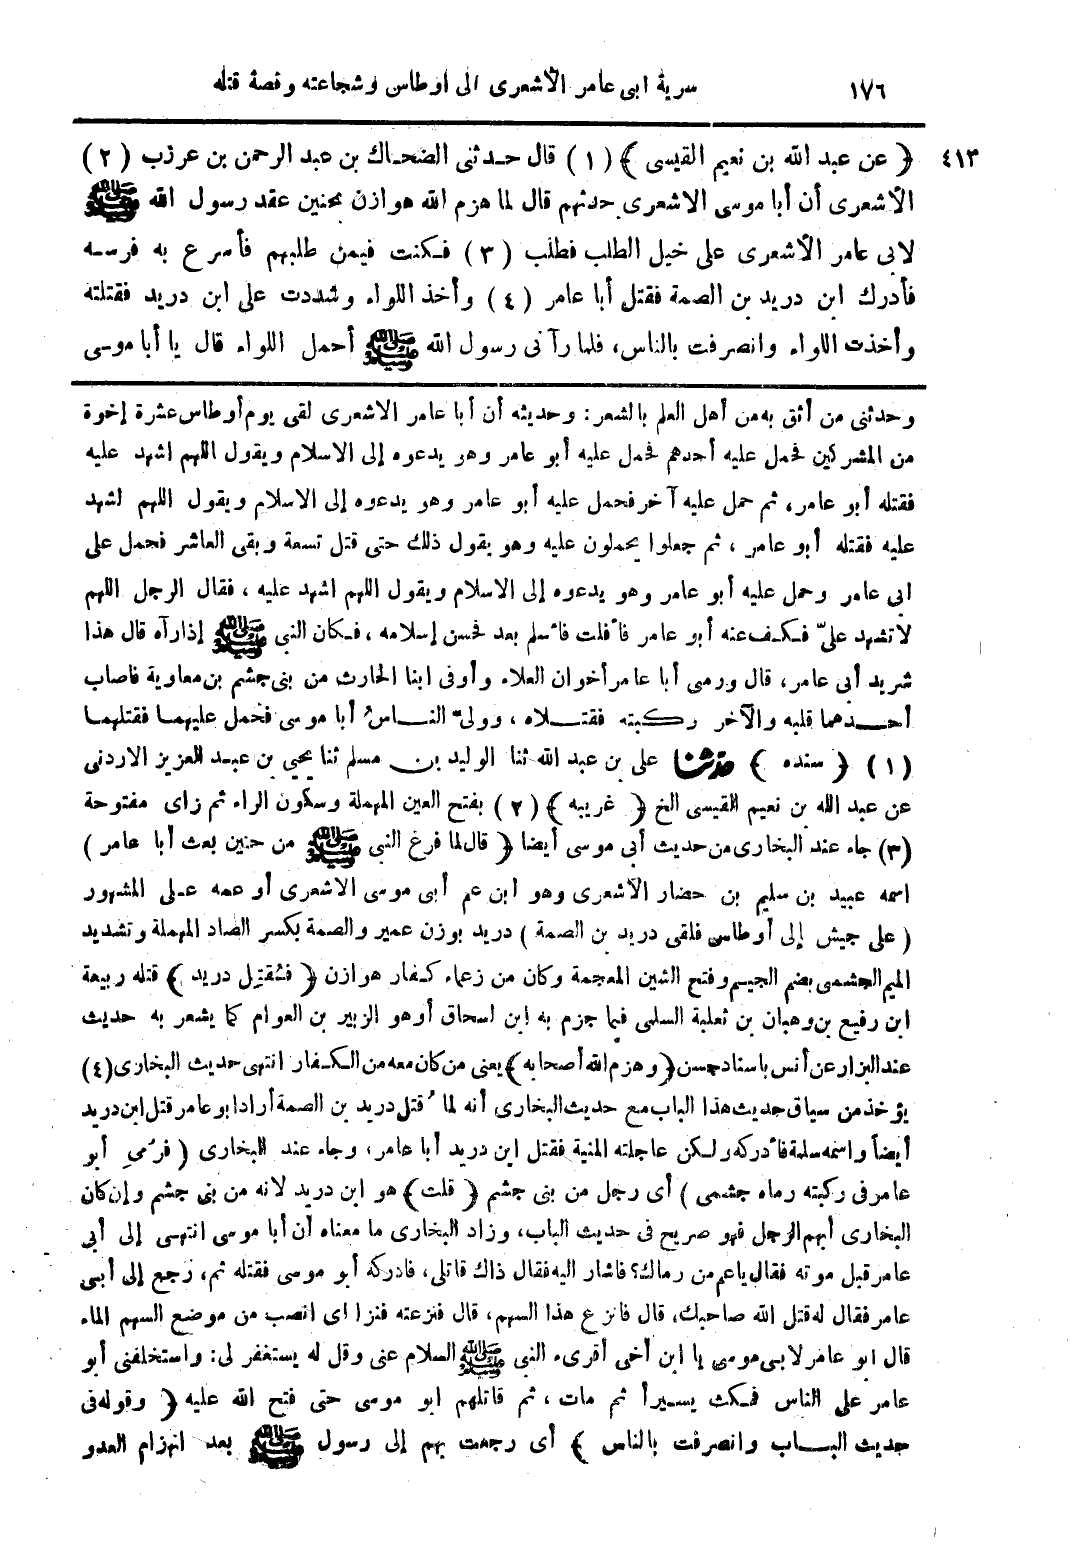 ١٧٦ سرية ابى عامر الأشعرى الى أوطاس وشجاعته وقصة قتله
٤١٣ ﴿ عن عبد الله بن نعيم القيسى ﴾ (١) قال حـدثنى الضحـاك بن عبد الرحمن بن عرزب (٢)
الأشعرى أن أبا موسى الاشعرى حدثهم قال لما هزم الله هوازن بحنين عقد رسول الله ﷺ
لابى عامر الأشعرى على خيل الطلب فطلب (٣) فـكنت فيمن طلبهم فأسرع به فرسـه
فأدرك ابن دريد بن الصمة فقتل أبا عامر (٤) وأخذ اللواء وشددت على ابن دريد فقتلته
وأخذت اللواء وانصرفت بالناس، فلما رآنى رسول الله ﷺ أحمل اللواء قال يا أبا موسى
وحدثنى من أثق به من أهل العلم بالشعر: وحديثه أن أبا عامر الاشعرى لقى يوم أوطاس عشرة إخوة
من المشركين فحمل عليه أحدهم فحمل عليه أبو عامر وهو يدعوه إلى الاسلام ويقول اللهم اشهد عليه
فقتله أبو عامر، ثم حمل عليه آخر فحمل عليه أبو عامر وهو يدعوه إلى الاسلام ويقول اللهم اشهد
عليه فقتله أبو عامر، ثم جعلوا يحملون عليه وهو يقول ذلك حتى قتل تسعة وبقى العاشر فحمل على
ابى عامر وحمل عليه أبو عامر وهو يدعوه إلى الاسلام ويقول اللهم اشهد عليه، فقال الرجل اللهم
لا تشهد علىّ فـكـف عنه أبو عامر فأفلت فأسلم بعد فحسن إسلامه، فـكان النبى ﷺ إذا رآه قال هذا
شريد أبى عامر، قال ورمى أبا عامر أخوان العلاء وأوفى ابنا الحارث من بنى جشم بن معاوية فاصاب
أحـــدهما قلبه والآخر ركـبته فقتــلاه، وولىّ النــاسُ أبا موسى فحمل عليهمـا فقتلهمـا
(١) ﴿ سنده ﴾ حدثنا على بن عبد الله ثنا الوليد بن مسلم ثنا يحيى بن عبـد العزيز الاردنى
عن عبد الله بن نعيم القيسى الخ ﴿ غريبه ﴾ (٢) بفتح العين المهملة وسكون الراء ثم زاى مفتوحة
(٣) جاء عند البخارى من حديث أبى موسى أيضا ( قال لما فرغ النبى ﷺ من حنين بعث أبا عامر )
اسمه عبيد بن سليم بن حضار الأشعرى وهو ابن عم أبى موسى الاشعرى أو عمه عـلى المشهور
( على جيش إلى أوطاس فلقى دريد بن الصمة ) دريد بوزن عمير والصمة بكسر الصاد المهملة وتشديد
الميم الجشمى بضم الجيم وفتح الشين المعجمة وكان من زعماء كـفار هوازن ( فقُتِل دريد ) قتله ربيعة
ابن رفيع بن وهبان بن ثعلبة السلمى فيما جزم به ابن اسحاق أو هو الزبير بن العوام كما يشعر به حديث
عند البزار عن أنس باسناد حسن ( وهزم الله أصحابه ) يعنى من كان معه من الـكـفار انتهى حديث البخارى (٤)
يؤخذ من سياق حديث هذا الباب مع حديث البخارى أنه لما قُتل دريد بن الصمة أراد ابو عامر قتل ابن دريد
أيضاً واسمه سلمة فأدركه ولـكن عاجلته المنية فقتل ابن دريد أبا عامر، وجاء عند البخارى ( فرُمى أبو
عامر فى ركبته رماه جشمى ) أى رجل من بنى جشم ( قلت ) هو ابن دريد لانه من بنى جشم وإن كان
البخارى أبهم الرجل فهو صريح فى حديث الباب، وزاد البخارى ما معناه أن أبا موسى انتهى إلى أبى
عامر قبل موته فقال ياعم من رماك؟ فاشار اليه فقال ذاك قاتلى، فادركه أبو موسى فقتله ثم، رجع إلى أبى
عامر فقال له قتل الله صاحبك، قال فانزع هذا السهم، قال فنزعته فنزا اى انصب من موضع السهم الماء
قال ابو عامر لابى موسى يا ابن أخى أقرىء النبى ﷺ السلام عنى وقل له يستغفر لى: واستخلفنى أبو
عامر على الناس فمـكث يسـيرأ ثم مات، ثم قاتلهم ابو موسى حتى فتح الله عليه ( وقوله فى
حديث البــاب وانصرفت بالناس ) أى رجعت بهم إلى رسول ﷺ بعد انهزام العدو